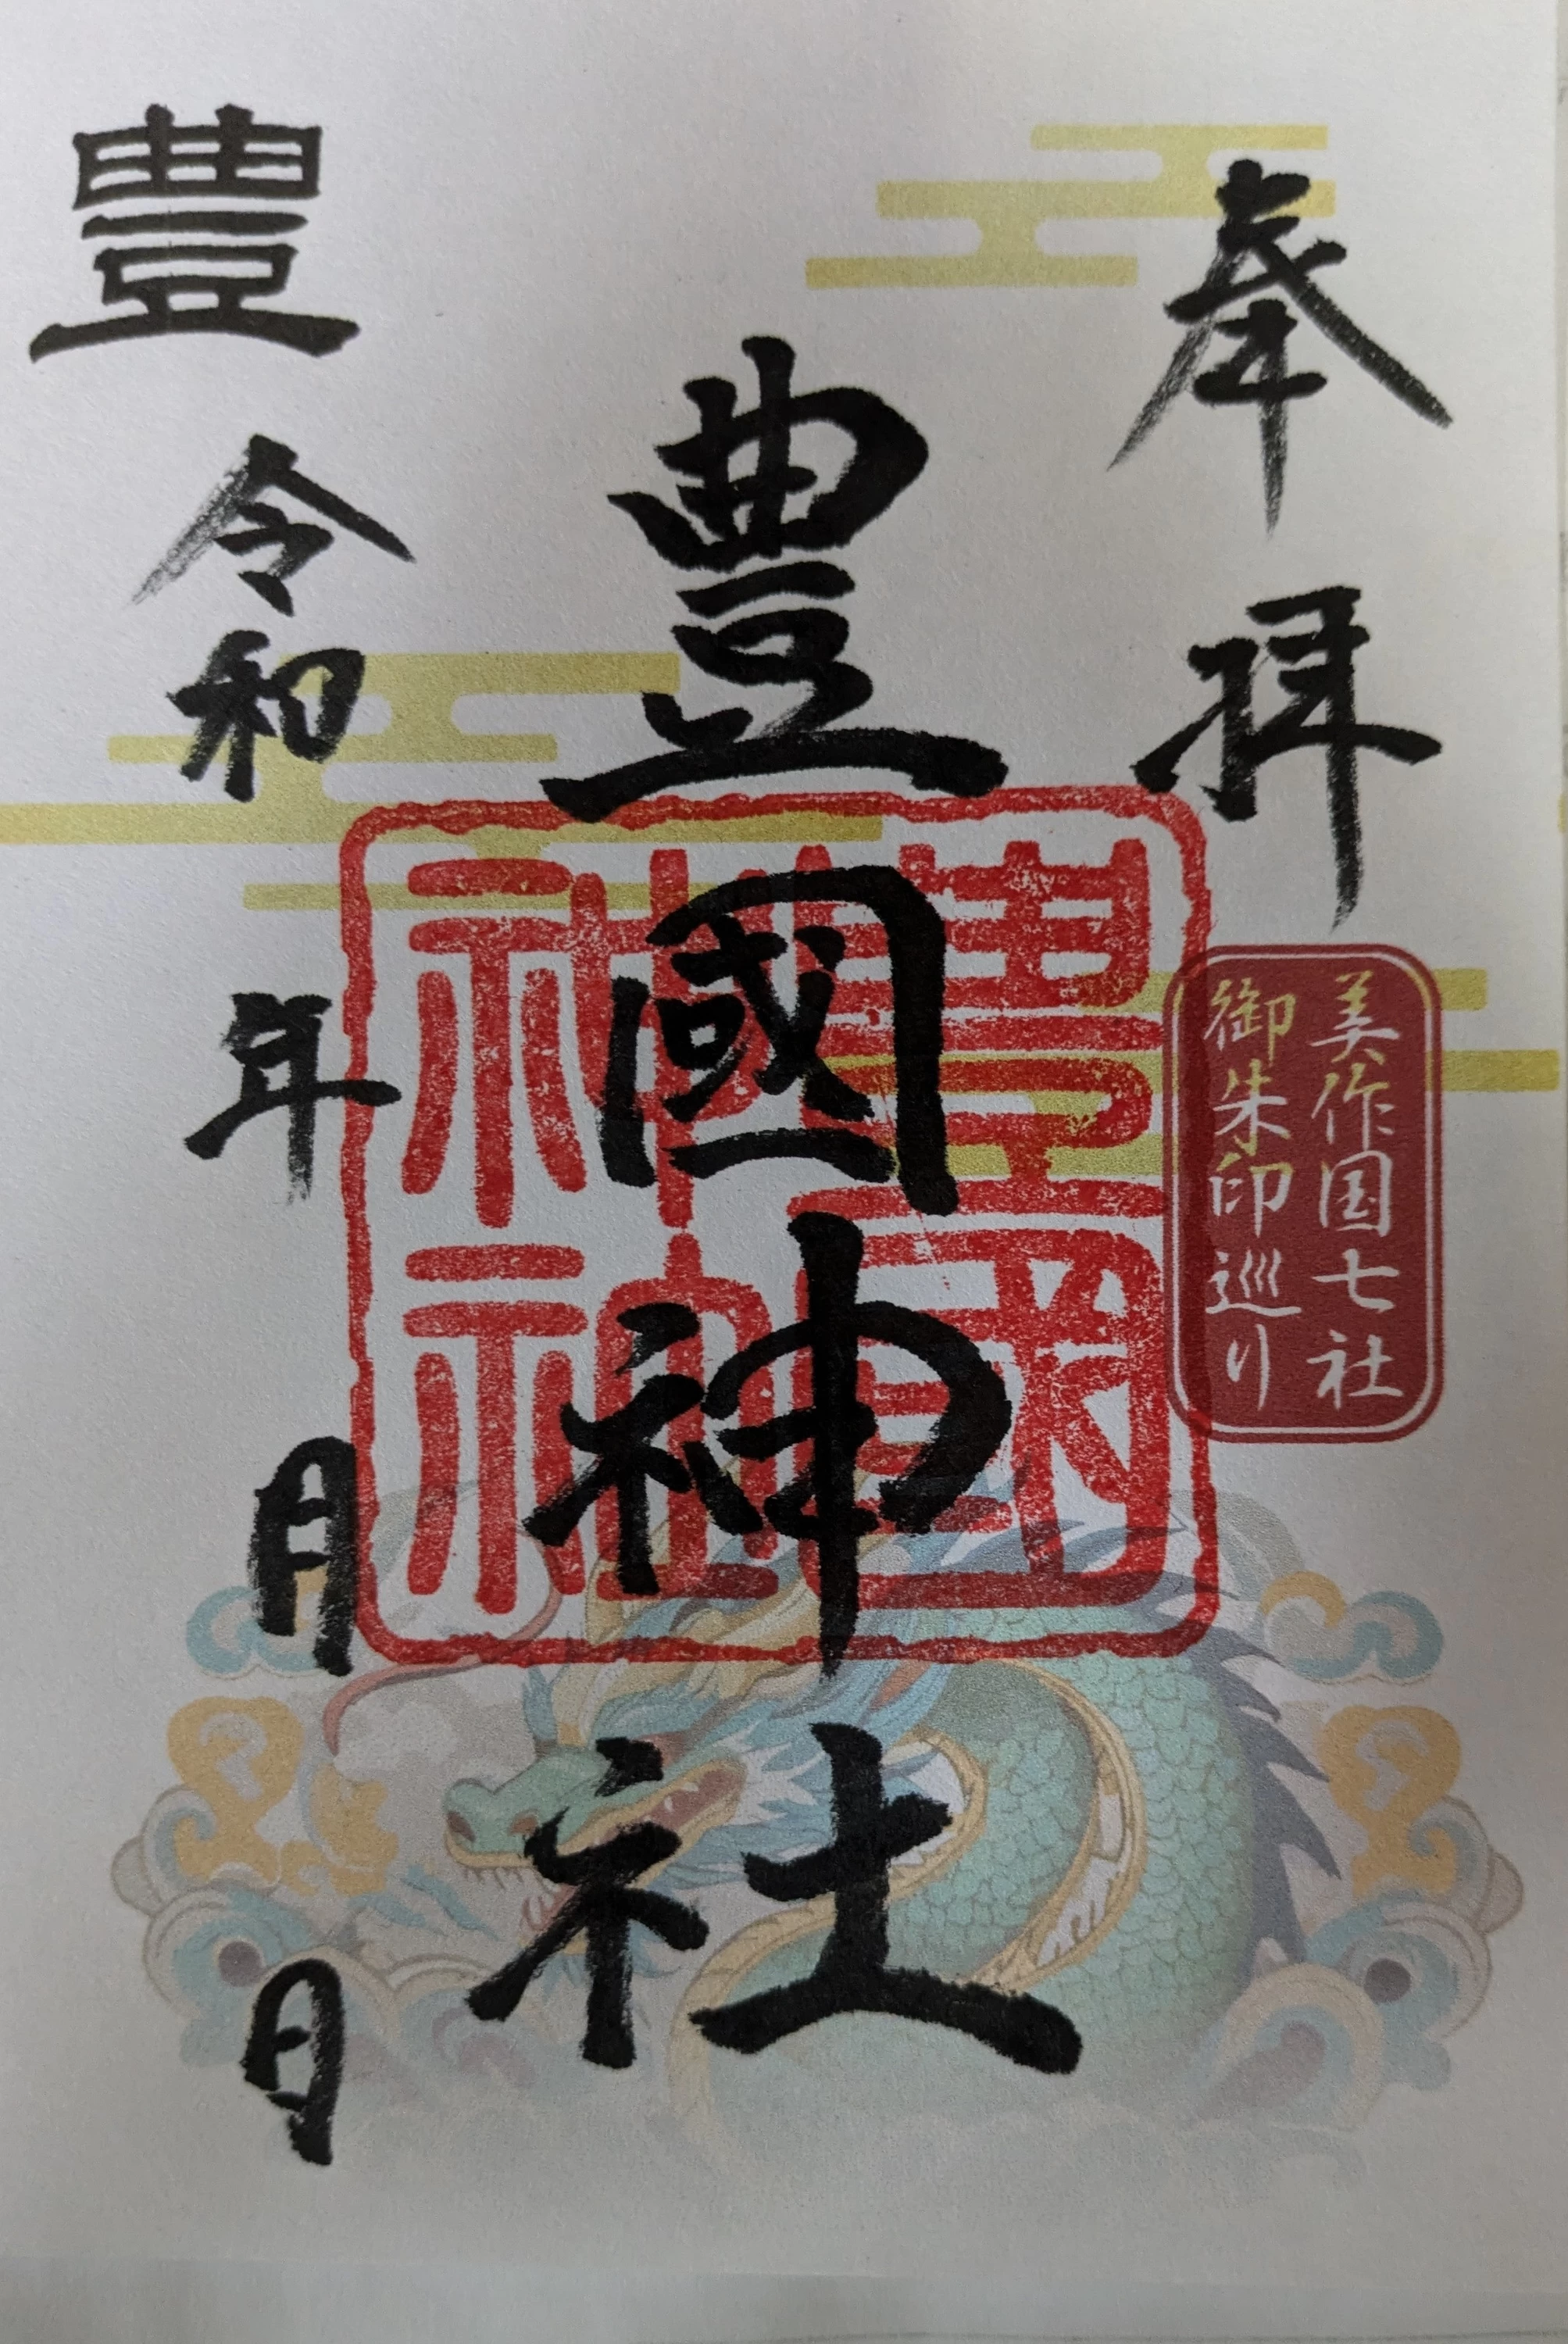 奉拝
美作国七社
御朱印巡り
豊國神社
豊國神社
豊
令和 年 月 日